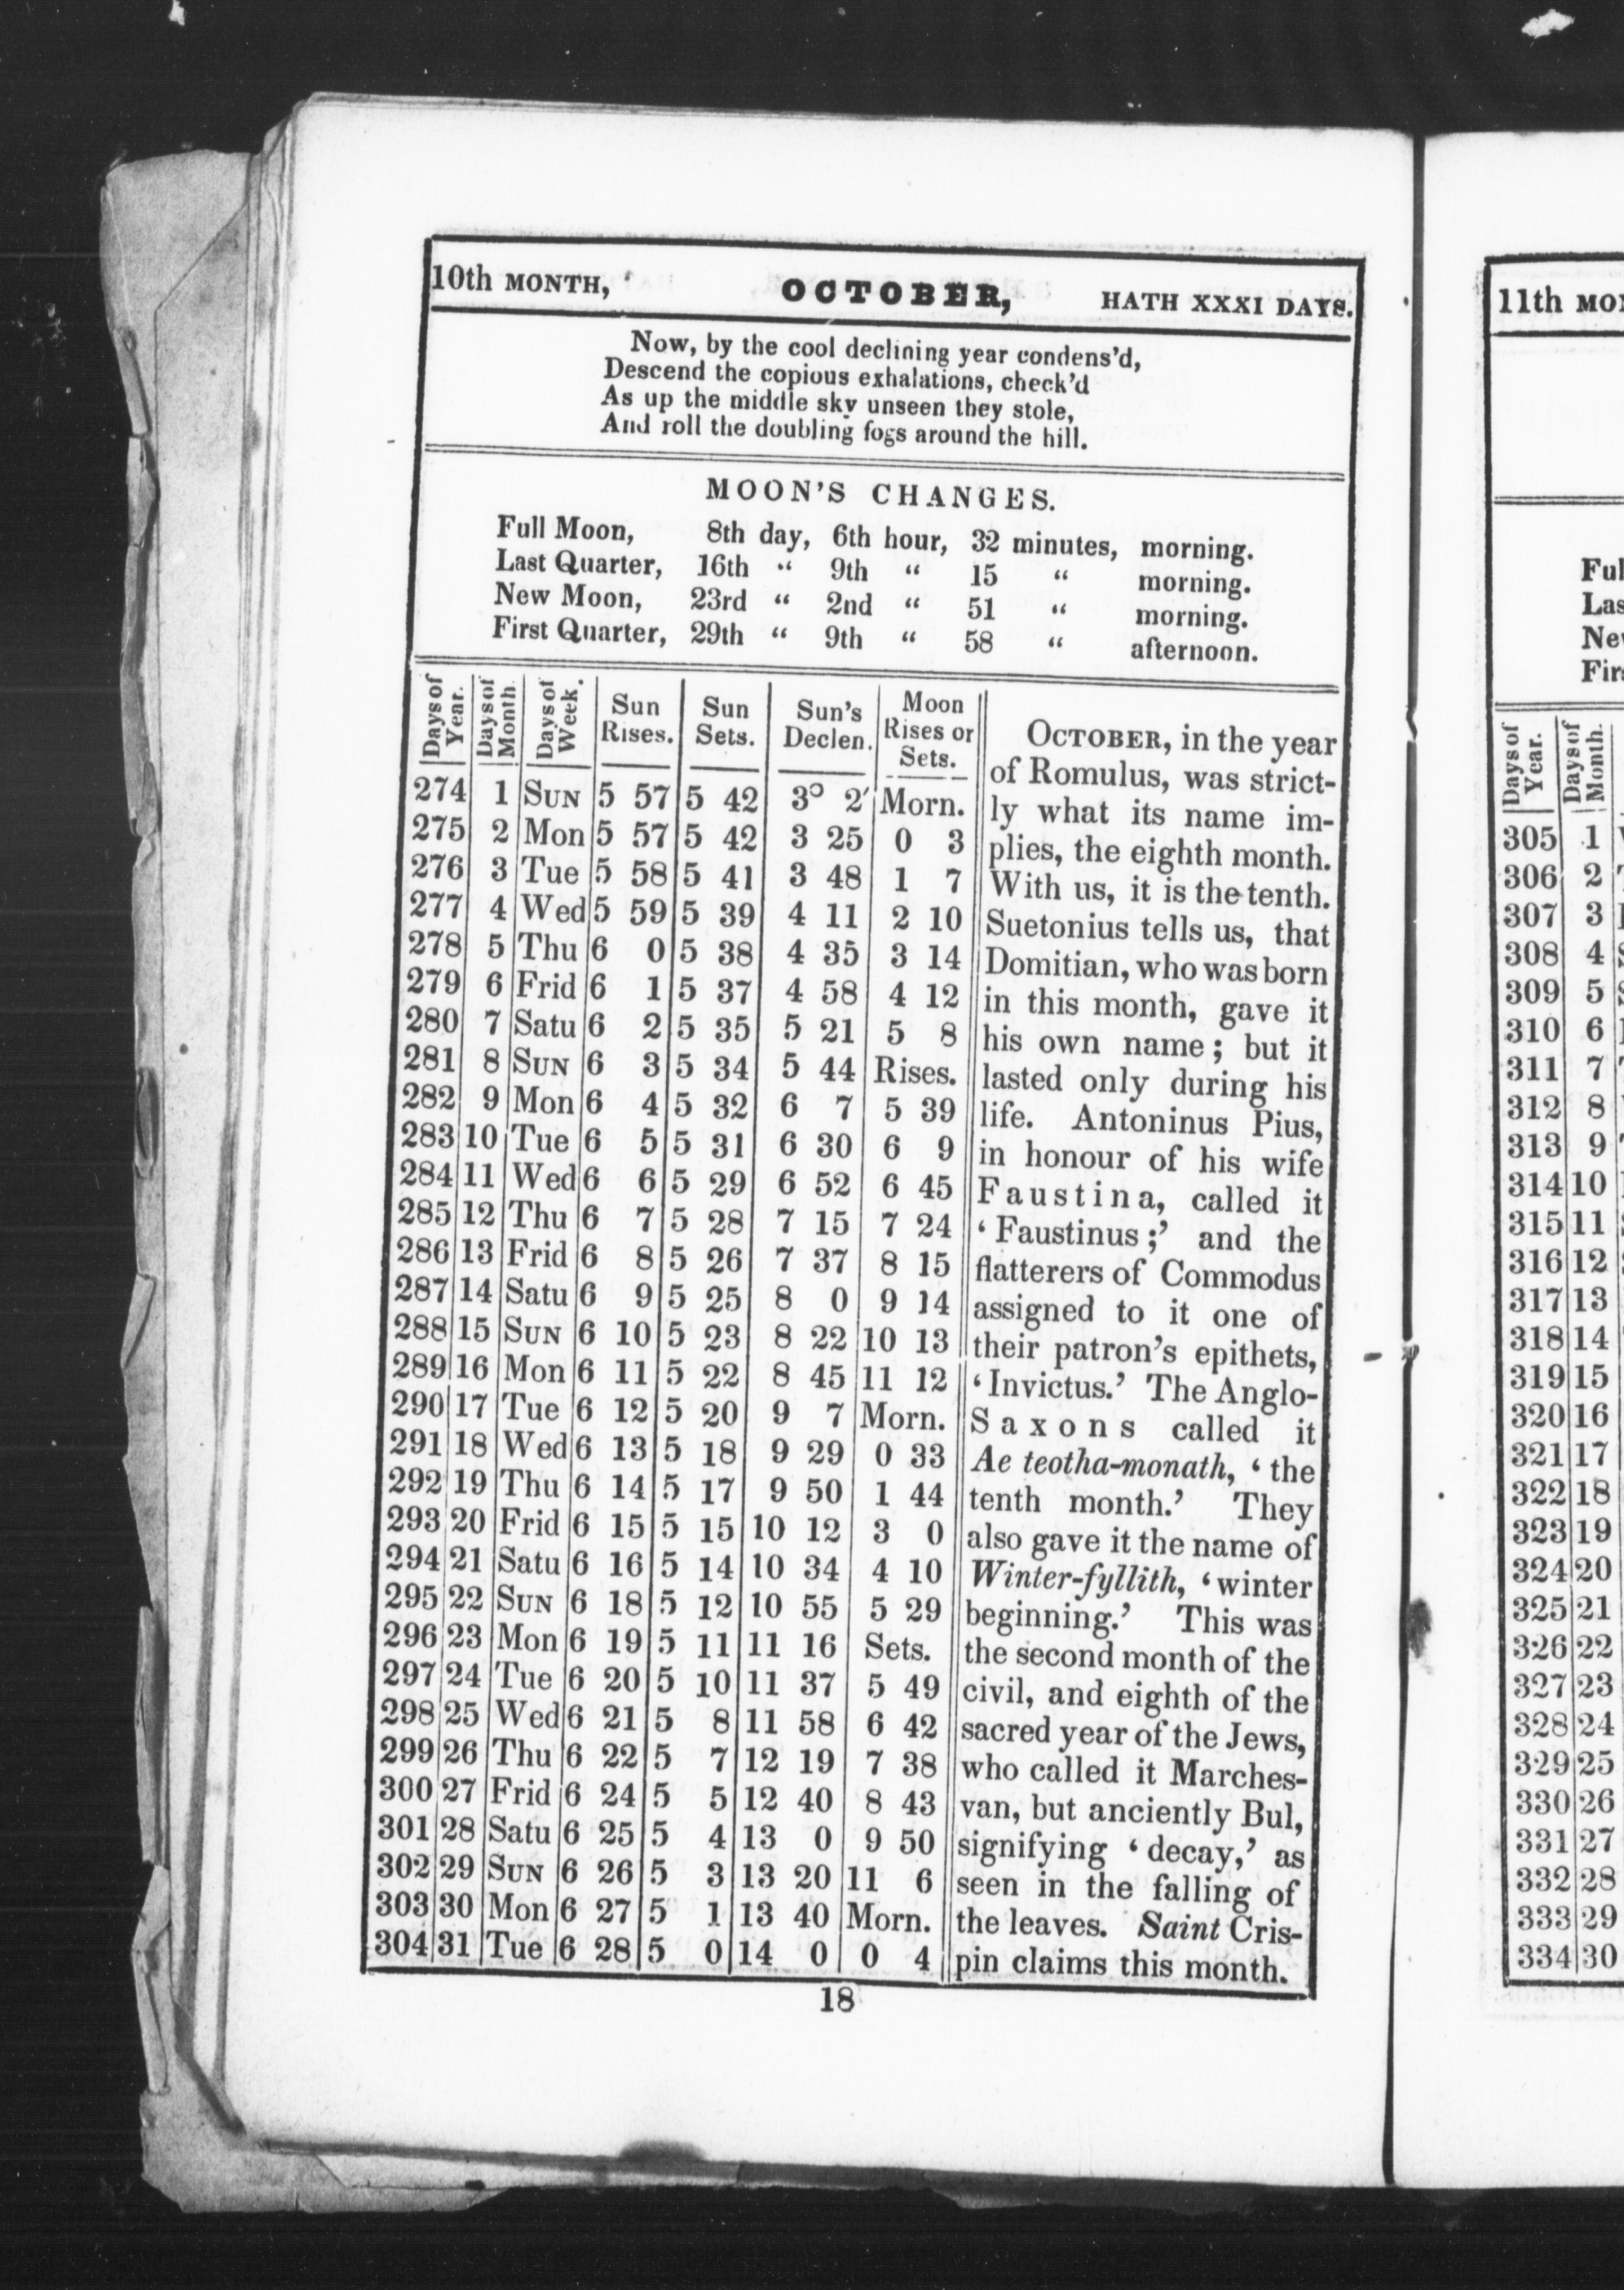 10th MONTH, OCTOBER, HATH XXXI DAYS.
Now, by the cool declining year condens'd,
Descend the copious exhalations, check'd
As up the middle sky unseen they stole,
And roll the doubling fogs around the hill.
MOON'S CHANGES.
Full Moon, 8th day, 6th hour, 32 minutes, morning.
Last Quarter, 16th “ 9th “ 15 “ morning.
New Moon, 23rd “ 2nd “ 51 “ morning.
First Quarter, 29th “ 9th “ 58 “ afternoon.
Days of Year. Days of Month. Days of Week. Sun Rises. Sun Sets. Sun's Declen. Moon Rises or Sets.
274 1 SUN 5 57 5 42 3° 2′ Morn.
275 2 Mon 5 57 5 42 3 25 0 3
276 3 Tue 5 58 5 41 3 48 1 7
277 4 Wed 5 59 5 39 4 11 2 10
278 5 Thu 6 0 5 38 4 35 3 14
279 6 Frid 6 1 5 37 4 58 4 12
280 7 Satu 6 2 5 35 5 21 5 8
281 8 SUN 6 3 5 34 5 44 Rises.
282 9 Mon 6 4 5 32 6 7 5 39
283 10 Tue 6 5 5 31 6 30 6 9
284 11 Wed 6 6 5 29 6 52 6 45
285 12 Thu 6 7 5 28 7 15 7 24
286 13 Frid 6 8 5 26 7 37 8 15
287 14 Satu 6 9 5 25 8 0 9 14
288 15 SUN 6 10 5 23 8 22 10 13
289 16 Mon 6 11 5 22 8 45 11 12
290 17 Tue 6 12 5 20 9 7 Morn.
291 18 Wed 6 13 5 18 9 29 0 33
292 19 Thu 6 14 5 17 9 50 1 44
293 20 Frid 6 15 5 15 10 12 3 0
294 21 Satu 6 16 5 14 10 34 4 10
295 22 SUN 6 18 5 12 10 55 5 29
296 23 Mon 6 19 5 11 11 16 Sets.
297 24 Tue 6 20 5 10 11 37 5 49
298 25 Wed 6 21 5 8 11 58 6 42
299 26 Thu 6 22 5 7 12 19 7 38
300 27 Frid 6 24 5 5 12 40 8 43
301 28 Satu 6 25 5 4 13 0 9 50
302 29 SUN 6 26 5 3 13 20 11 6
303 30 Mon 6 27 5 1 13 40 Morn.
304 31 Tue 6 28 5 0 14 0 0 4
OCTOBER, in the year
of Romulus, was strict-
ly what its name im-
plies, the eighth month.
With us, it is the tenth.
Suetonius tells us, that
Domitian, who was born
in this month, gave it
his own name; but it
lasted only during his
life. Antoninus Pius,
in honour of his wife
Faustina, called it
‘Faustinus;’ and the
flatterers of Commodus
assigned to it one of
their patron's epithets,
‘Invictus.’ The Anglo-
Saxons called it
Ae teotha-monath, ‘the
tenth month.’ They
also gave it the name of
Winter-fyllith, ‘winter
beginning.’ This was
the second month of the
civil, and eighth of the
sacred year of the Jews,
who called it Marches-
van, but anciently Bul,
signifying ‘decay,’ as
seen in the falling of
the leaves. Saint Cris-
pin claims this month.
18
11th
Days of Year. Days of Month.
305 1
306 2
307 3
308 4
309 5
310 6
311 7
312 8
313 9
314 10
315 11
316 12
317 13
318 14
319 15
320 16
321 17
322 18
323 19
324 20
325 21
326 22
327 23
328 24
329 25
330 26
331 27
332 28
333 29
334 30